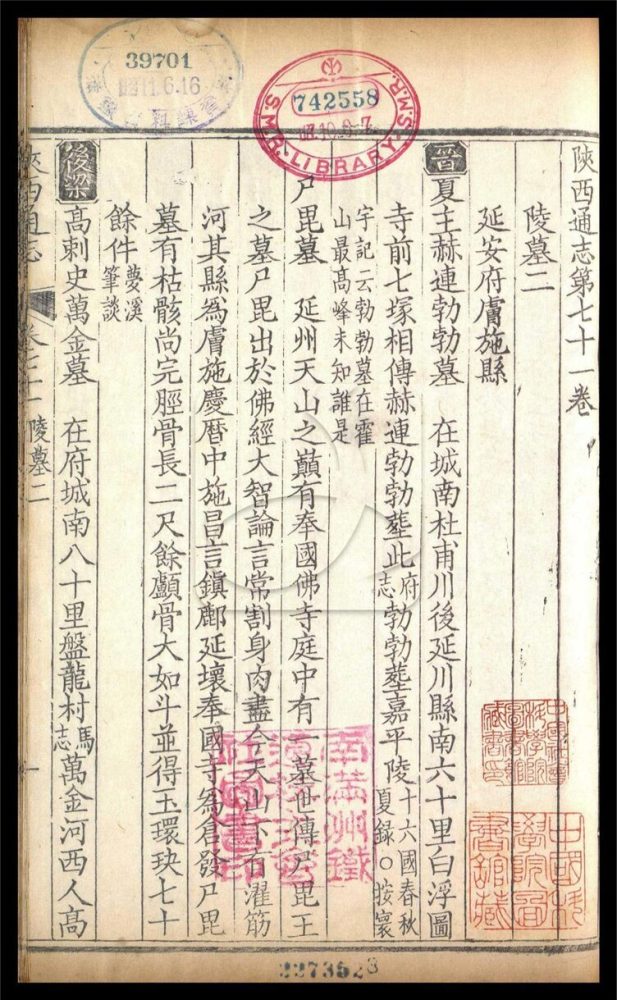 39701
11.6.16
742558
S.M.R. LIBRARY S.M.R.
陝西通志第七十一卷
陵墓二
延安府膚施縣
晉
夏主赫連勃勃墓 在城南杜甫川後延川縣南六十里白浮圖
寺前七塚相傳赫連勃勃塟此府志勃勃塟嘉平陵十六國春秋夏錄○按寰
宇記云勃勃墓在霍山最高峰未知誰是
尸毘墓 延州天山之巔有奉國佛寺庭中有一墓世傳尸毘王
之墓尸毘出於佛經大智論言常割身肉盡今天山下有濯筋
河其縣爲膚施慶曆中施昌言鎮鄜延壞奉國寺爲倉發尸毘
墓有枯骸尚完脛骨長二尺餘顱骨大如斗並得玉環玦七十
餘件夢溪筆談
後梁
高刺史萬金墓 在府城南八十里盤龍村馬志萬金河西人高
陝西通志 卷七十一 陵墓二 一
中國科學院圖書館藏
南滿州鐵
2273523